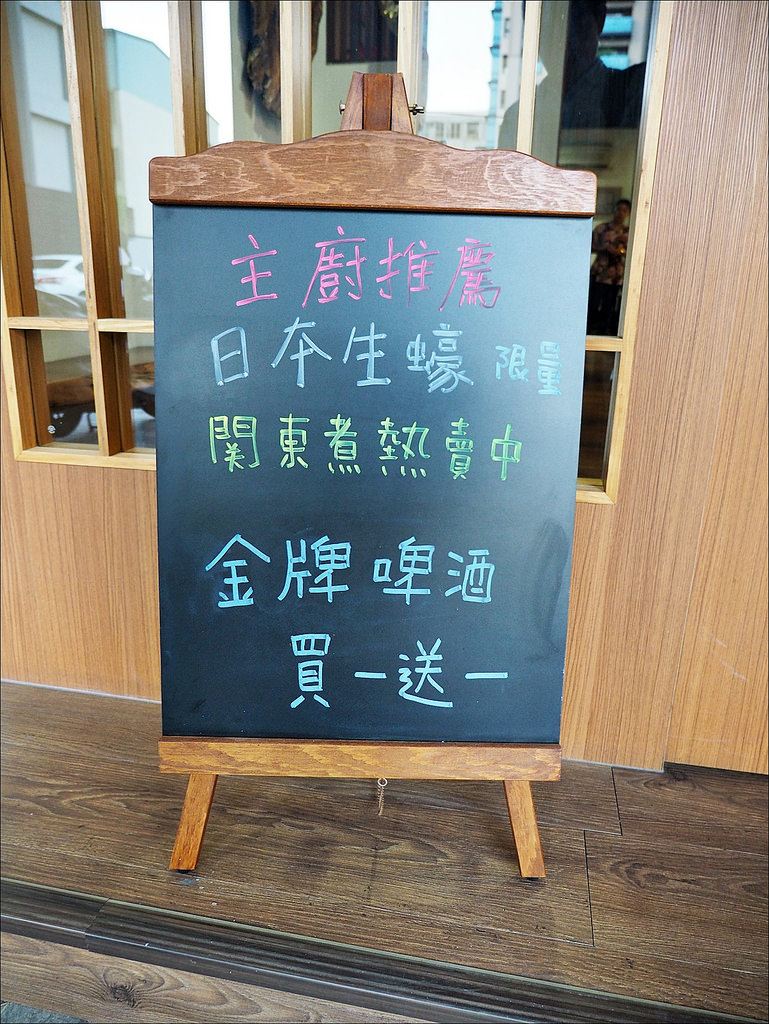 主廚推薦
日本生蠔 限量
関東煮熱賣中
金牌啤酒
買一送一